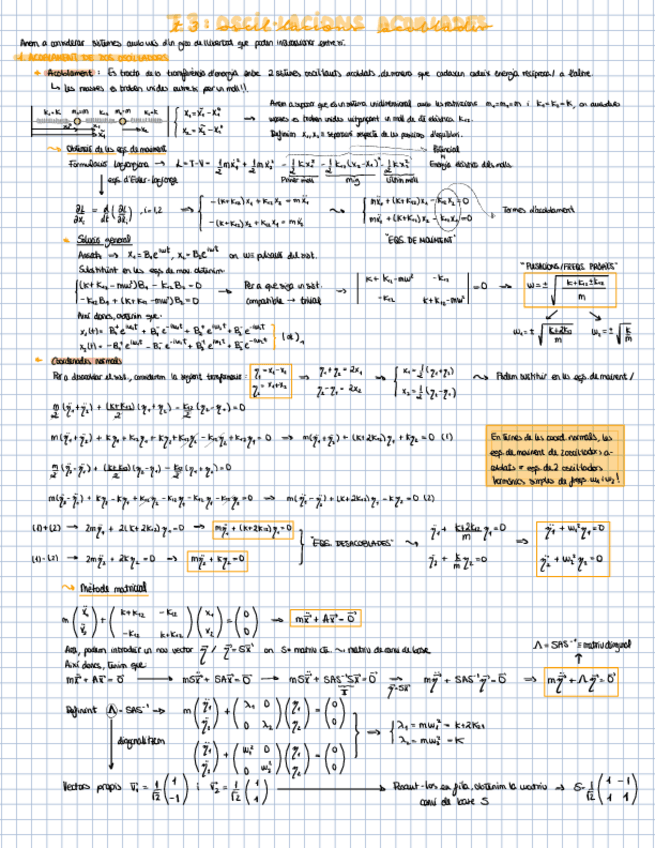 T.3: OSCIL·LACIONS ACOBLADES
Anem a considerar sistemes amb més d'un grau de llibertat que poden interaccionar entre si.
1. ACOBLAMENT DE DOS OSCIL·LADORS
Acoblament: Es tracta de la transferència d'energia entre 2 sistemes oscil·lants acoblats, de manera que cadascun cedeix energia recíproca/ a l'altre.
↳ Les masses es troben unides entre si per un moll!!
Anem a suposar que és un sistema unidimensional amb les restriccions m₁=m₂=m i K₁=K₂=K, on ambdues
masses es troben unides mitjançant un moll de cte elàstica K₁₂.
Obtenció de les eqs. de moviment
Formulació lagrangiana → L=T-V= ½mẋ₁² + ½mẋ₂² - ½Kx₁² - ½K₁₂(x₂-x₁)² - ½Kx₂²
Potencial
Energia elàstica dels molls
Primer moll mig Últim moll
eqs. d'Euler-Lagrange
∂L/∂xᵢ = d/dt(∂L/∂ẋᵢ), i=1,2 ⇒ { -(K+K₁₂)x₁ + K₁₂x₂ = mẍ₁
-(K+K₁₂)x₂ + K₁₂x₁ = mẍ₂
mẍ₁ + (K+K₁₂)x₁ - K₁₂x₂ = 0
mẍ₂ + (K+K₁₂)x₂ - K₁₂x₁ = 0
Termes d'acoblament
"EQS. DE MOVIMENT"
Solució general
Assaig → x₁=B₁e^iωt, x₂=B₂e^iωt on ω≡pulsació del sist.
Substituint en les eqs de mov. obtenim:
(K+K₁₂-mω²)B₁ - K₁₂B₂ = 0
-K₁₂B₁ + (K+K₁₂-mω²)B₂ = 0
Per a que siga un sist.
compatible → trivial
| K+K₁₂-mω² -K₁₂ |
| -K₁₂ K+K₁₂-mω² | = 0
"PULSACIONS/FREQS. PRÒPIES"
ω=±√((K+K₁₂±K₁₂)/m)
ω₁=±√((K+2K₁₂)/m) ω₂=±√(K/m)
Així doncs, obtenim que:
x₁(t)= B₁⁺e^iω₁t + B₁⁻e^-iω₁t + B₂⁺e^iω₂t + B₂⁻e^-iω₂t
x₂(t)= -B₁⁺e^iω₁t - B₁⁻e^-iω₁t + B₂⁺e^iω₂t + B₂⁻e^-iω₂t
Coordenades normals
Per a desacoblar el sist., considerem la següent transformació:
η₁=x₁-x₂
η₂=x₁+x₂
⇒ η₂+η₁=2x₁
η₂-η₁=2x₂
⇒ { x₁=½(η₂+η₁)
x₂=½(η₂-η₁)
Podem substituir en les eqs de moviment/
m/2(η̈₁+η̈₂) + (K+K₁₂)/2(η₁+η₂) - K₁₂/2(η₂-η₁)=0
m(η̈₁+η̈₂) + Kη₁+Kη₂+K₁₂η₁+K₁₂η₂-K₁₂η₂+K₁₂η₁=0 ⇒ m(η̈₁+η̈₂) + (K+2K₁₂)η₁+Kη₂=0 (1)
En termes de les coord. normals, les
eqs. de moviment de 2 oscil·ladors a-
coblats = eqs. de 2 oscil·ladors
harmònics simples de freqs ω₁ i ω₂!
m/2(η̈₂-η̈₁) + (K+K₁₂)/2(η₂-η₁) - K₁₂/2(η₁+η₂)=0
m(η̈₁-η̈₂) + (K+2K₁₂)η₁-Kη₂=0 (2)
(1)+(2) → 2mη̈₁ + 2(K+2K₁₂)η₁=0 → mη̈₁+(K+2K₁₂)η₁=0
(1)-(2) → 2mη̈₂ + 2Kη₂=0 → mη̈₂+Kη₂=0
"EQS. DESACOBLADES"
η̈₁ + (K+2K₁₂)/m η₁=0 ⇒ η̈₁+ω₁²η₁=0
η̈₂ + K/m η₂=0 ⇒ η̈₂+ω₂²η₂=0
Mètode matricial
m(ẍ₁ ẍ₂) + (K+K₁₂ -K₁₂ -K₁₂ K+K₁₂)(x₁ x₂) = (0 0) ⇒ mẍ+Ax=0
Ara, podem introduir un nou vector η / η=Sx on S≡matriu cte. ~ matriu de canvi de base
Així doncs, tenim que:
Λ=SAS⁻¹≡matriu diagonal
mẍ+Ax=0 → mSẍ+SAx=0 → mSẍ+SAS⁻¹Sx=0 → mη̈+SAS⁻¹η=0 ⇒ mη̈+Λη=0
I
η=Sx
Definint Λ=SAS⁻¹ → m(η̈₁ η̈₂) + (λ₁ 0 0 λ₂)(η₁ η₂) = (0 0)
diagonalitzem
(η̈₁ η̈₂) + (ω₁² 0 0 ω₂²)(η₁ η₂) = (0 0)
⇒ { λ₁=mω₁²=K+2K₁₂
λ₂=mω₂²=K
Vectors propis v₁=1/√2(1 -1) i v₂=1/√2(1 1) → Posant-los en fila, obtenim la matriu → S=1/√2(1 -1 1 1)
canvi de base S